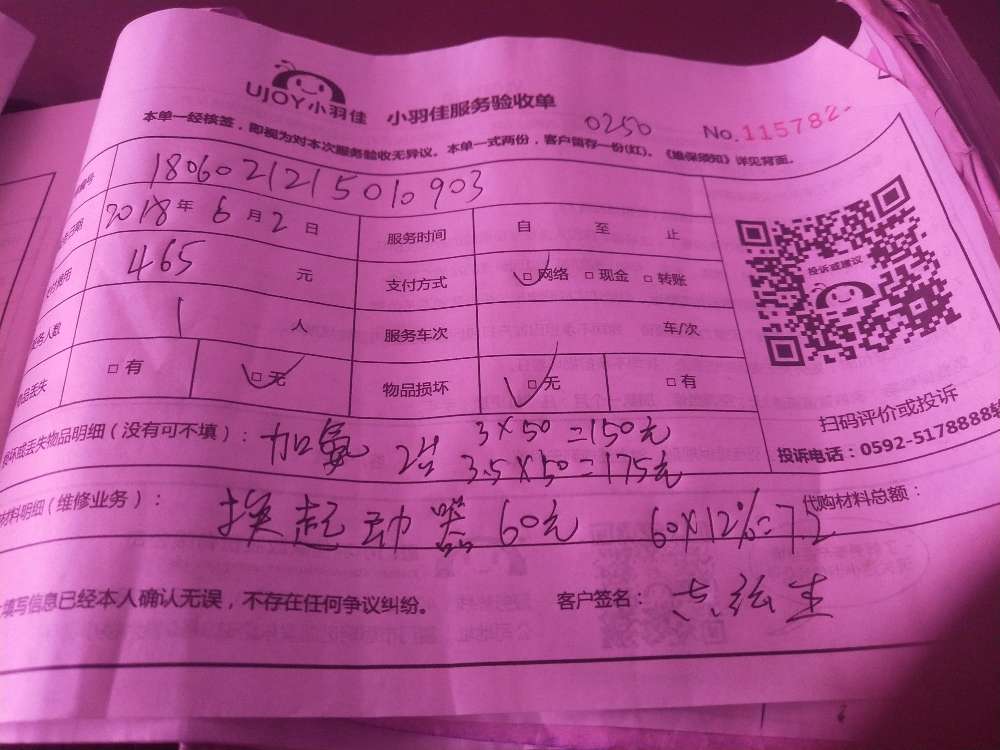 UJOY小羽佳 小羽佳服务验收单
0250 No.1157822
本单一经核签，即视为对本次服务验收无异议。本单一式两份，客户留存一份(红)。《维保须知》详见背面。
编号 1806021215010903
日期 2018年6月2日 服务时间 自 至 止
465元 支付方式 □网络 □现金 □转账
人数 1人 服务车次 车/次
丢失 □有 □无 物品损坏 □无 □有
投诉或建议
扫码评价或投诉
投诉电话：0592-5178888转
坏或丢失物品明细（没有可不填）： 加氨 2台 3×50=150元
3.5×50=175元
材料明细（维修业务）： 换起动器60元 60×12%=7.2 代购材料总额：
填写信息已经本人确认无误，不存在任何争议纠纷。 客户签名：